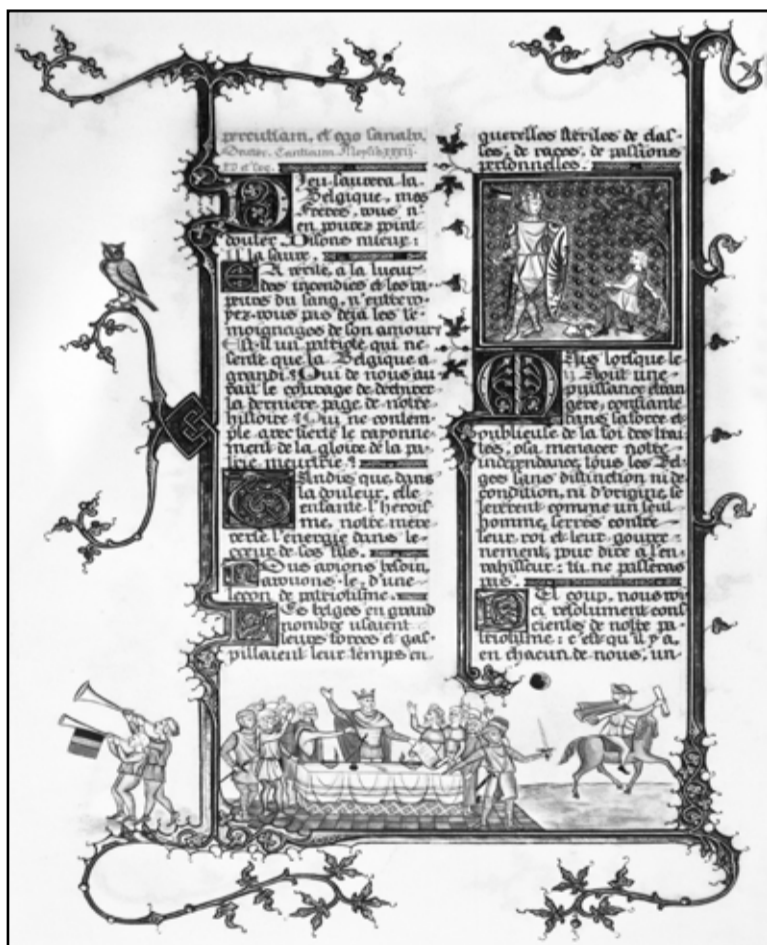 percutiam, et ego sanabo,
Deuter. Canticum Moysis. XXXII.
Dieu sauvera la
Belgique, mes
Frères, vous n'
en pouvez point
douter. Disons mieux :
il la sauve.
En vérité, à la lueur
des incendies et les va-
peurs du sang, n'entrevo-
yez-vous pas déjà les té-
moignages de son amour
Est-il un patriote qui ne
sente que la Belgique a
grandi? Qui de nous au-
rait le courage de déchirer
la dernière page de notre
histoire? Qui ne contem-
ple avec fierté le rayonne-
ment de la gloire de la pa-
trie meurtrie?
Tandis que, dans
la douleur, elle
enfante l'héroïs-
me, notre mère
verse l'énergie dans le
cœur de ses fils.
Nous avions besoin,
avouons-le, d'une
leçon de patriotisme.
Les belges en grand
nombre usaient
leurs forces et gas-
pillaient leur temps en
querelles stériles de clas-
ses, de races, de passions
personnelles.
Mais lorsque le
2 Août une
puissance étran-
gère, confiante
dans sa force et
oublieuse de la foi des trai-
tés, osa menacer notre
indépendance, tous les Bel-
ges sans distinction ni de
condition, ni d'origine, se
levèrent comme un seul
homme, serrés contre
leur roi et leur gouver-
nement, pour dire à l'en-
vahisseur : tu ne passeras
pas.
Du coup, nous voi-
ci résolument cons-
cients de notre pa-
triotisme : c'est qu'il y a,
en chacun de nous, un